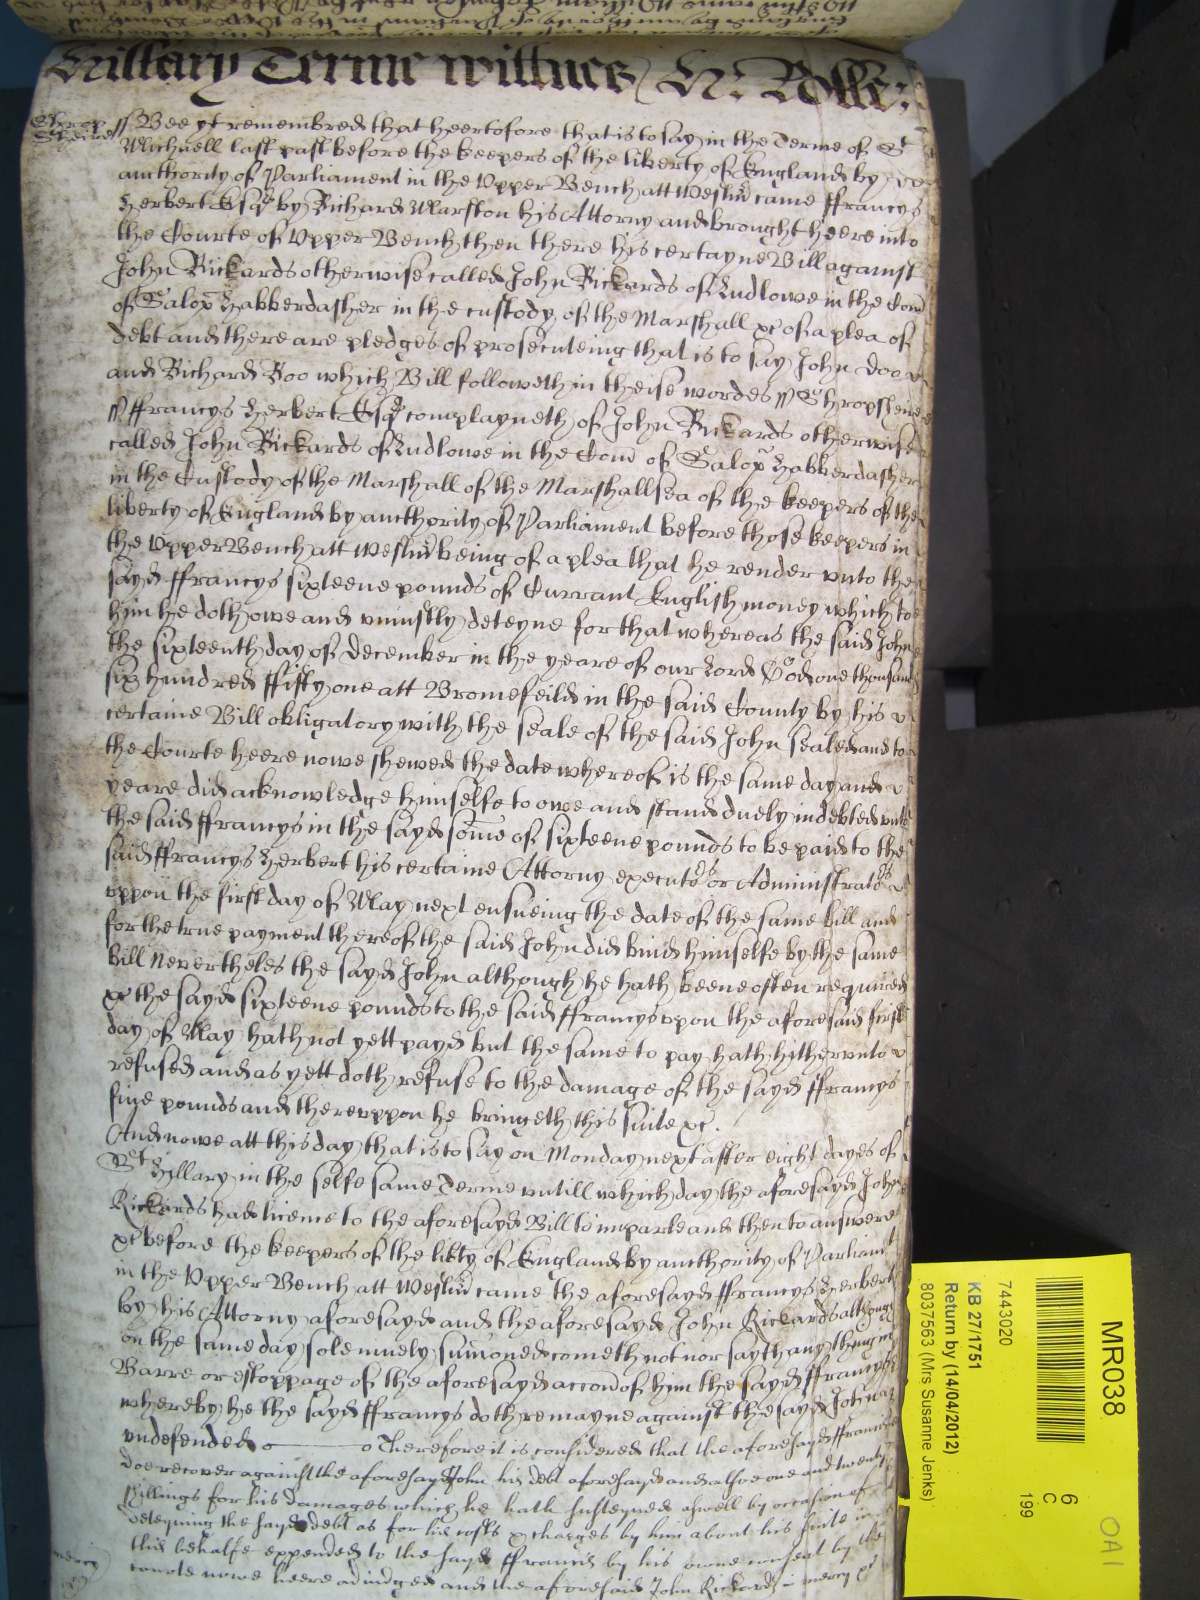 Hillary Terme wittnes H: Rolle:
Shrop
Sheire
ss Bee yt remembred that heertofore that is to say in the Terme of St
Michaell last past before the keepers of the liberty of England by
authority of Parliament in the Upper Bench att Westm came ffrancys
Herbert Esqr by Richard Marston his Attorny and brought heere into
the Courte of Upper Bench then there his certayne Bill against
John Rickards otherwise called John Rickards of Ludlowe in the Com
of Salop Habberdasher in the custody of the Marshall &c of a plea of
debt and there are pledges of prosecuteing that is to say John Doo
and Richard Roo which Bill followeth in theise wordes ss Shropsheire
ss ffrancys Herbert Esqr complayneth of John Rickards otherwise
called John Rickards of Ludlowe in the Com of Salop Habberdasher
in the Custody of the Marshall of the Marshallsea of the keepers of the
liberty of England by authority of Parliament before those keepers in
the Upper Bench att Westm being of a plea that he render unto the
sayd ffrancys sixteene pounds of Currant English money which to
him he doth owe and uniustly deteyne for that whereas the said John
the sixteenth day of December in the yeare of our Lord God one thousand
six hundred ffifty one att Bromefeild in the said County by his
certaine Bill obligatory with the seale of the said John sealed and to
the Courte heere nowe shewed the date whereof is the same day and
yeare did acknowledge himselfe to owe and stand duely indebted unto
the said ffrancys in the sayd some of sixteene pounds to be paid to the
said ffrancys Herbert his certaine Attorny executors or Administrators
uppon the first day of May next ensueing the date of the same bill and
for the true payment thereof the said John did bind himselfe by the same
bill Nevertheles the sayd John although he hath beene often required
&c the sayd sixteene pounds to the said ffrancys uppon the aforesaid first
day of May hath not yett payd but the same to pay hath hitherunto
refused and as yett doth refuse to the damage of the sayd ffrancys
five pounds and thereuppon he bringeth this suite &c.
And nowe att this day that is to say on Monday next after eight dayes of
St Hillary in the selfe same Terme untill which day the aforesayd John
Rickards had licence to the aforesayd Bill to imparle and then to answere
&c before the keepers of the libty of England by authority of Parliamt
in the Upper Bench att Westm came the aforesayd ffrancys Herbert
by his Attorny aforesayd and the aforesayd John Rickards although
on the same day solemnely sumoned cometh not nor sayth any thing in
Barre or estoppage of the aforesayd accon of him the sayd ffrancys
whereby he the sayd ffrancys doth remayne against the sayd John
undefended o———o Therefore it is considered that the aforesayd ffrancis
doe recover against the aforesayd John his debt aforesayd and alsoe one and twenty
shillings for his damages which he hath susteyned aswell by occasion of
deteyning the sayd debt as for his costs & charges by him about his suite in
this behalfe expended to the sayd ffrancis by his owne consent by the
courte nowe heere adiudged and the aforesaid John Rickards in mercy &c
mercy
MR038
6
C
199
7443020
KB 27/1751
Return by (14/04/2012)
8037563 (Mrs Susanne Jenks)
OA1